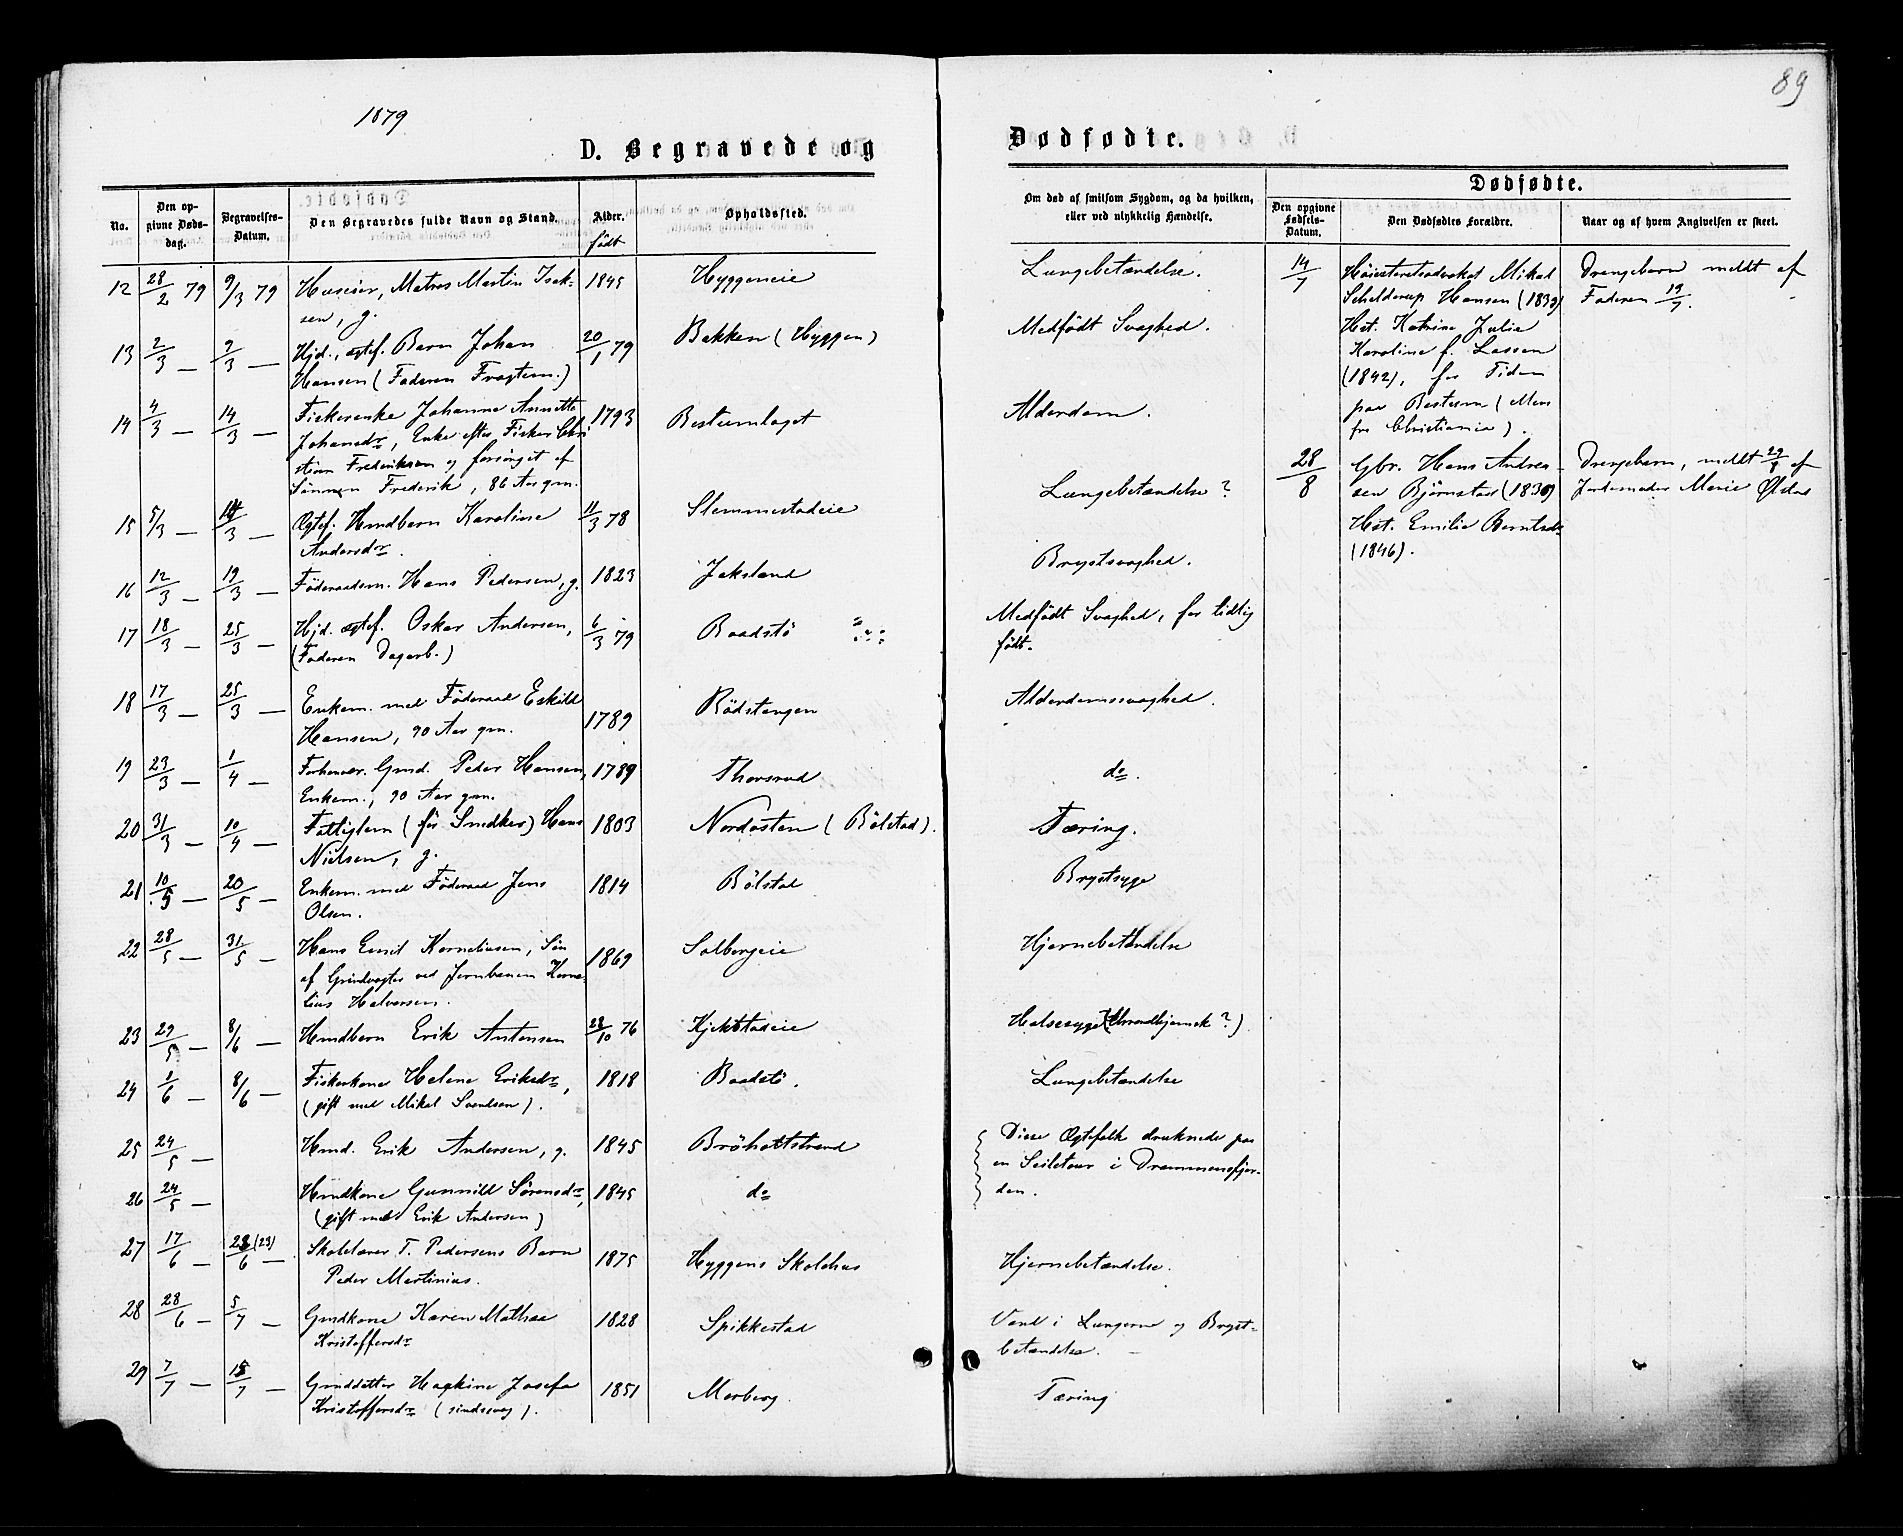 1879
D. Begravede og
No.
Den op-
givne Døds-
dag.
Begravelses-
Datum.
Den Begravedes fulde Navn og Stand.
Alder.
født
Opholdssted.
12 28/2 79 9/3 79 Huseier, Matres Martin Isak- 1845 Hyggeneie
sen, g.
13 2/3 — 9/3 — Hjd., ægtef. Barn Johan 20/1 79 Bakken (Hyggen)
Hansen (Faderen Fragtem.)
14 4/3 — 14/3 — Fiskerenke Johanne Annette 1793 Bestumlaget
Johansdr, Enke efter Fisker Chri
stian Frederiksen og forsørget af
Sønnen Frederik, 86 Aar gm.
15 5/3 — 14/3 — Ægtef. Hmdbarn Karoline 11/3 78 Slemmestadeie
Andersdr.
16 12/3 — 19/3 — Föderaadsm. Hans Pedersen, g. 1823 Jaksland
17 18/3 — 25/3 — Hjd. ægtef. Oskar Andersen, 6/3 79 Baadstö
(Faderen Dagarb.)
18 17/3 — 25/3 — Enkem. med Föderaad Eskild
Hansen, 90 Aar gm. 1789 Rödstangen
19 23/3 — 1/4 — Forhenvær. Gmd. Peder Hansen, 1789 Thorsrud
Enkem., 90 Aar gm.
20 31/3 — 10/4 — Fattiglem (för Snedker) Hans 1803 Nordasten (Bölstad).
Nielsen, g.
21 10/5 — 20/5 — Enkem. med Föderaad Jens 1814 Bölstad
Olsen.
22 28/5 — 31/5 — Hans Emil Korneliusen, Sön 1869 Solbergeie
af Grindvogter ved Jernbanen Korne-
lius Halvorsen.
23 29/5 — 8/6 — Hmdbarn Erik Antonsen 28/10 76 Kjekstadeie
24 1/6 — 8/6 — Fiskerkone Helene Eriksdr, 1818 Baadstö.
(gift med Mikal Svendsen).
25 24/5 — Hmd. Erik Andersen, g. 1845 Bröholtstrand
26 24/5 — Hmdkone Gunnild Sörensdr, 1845 do
(gift med Erik Andersen)
27 17/6 — 23/6 (23) — Skolelærer T. Pedersens Barn 1875 Hyggens Skolehus
Peder Martinius.
28 28/6 — 5/7 — Gmdkone Karen Mathea 1828 Spikkestad
Kristoffersdr
29 7/7 — 15/7 — Gmddatter Hagkine Josefa 1851 Morberg.
Kristoffersdr (sindssvag).
89
Dødfødte.
Om død af smitsom Sygdom, og da hvilken,
eller ved ulykkelig Hændelse.
Dødfødte.
Den opgivne
Fødsels-
Datum.
Den Dødfødtes Forældre.
Naar og af hvem Angivelsen er skeet.
Lungebetændelse.
Medfödt Svaghed.
Alderdom.
Lungebetændelse?
Brystsvaghed.
Medfödt Svaghed, for tidlig
födt.
Alderdomssvaghed.
do.
Tæring.
Brystsyge
Hjernebetændelse
Halssyge (Strubehjernek?).
Lungebetændelse
Disse Ægtefolk druknede paa
en Seiletour i Drammensfjor-
den.
Hjernebetændelse.
Vand i Lungerne og Bryst-
betændelse.
Tæring
14/7 Höiesteretsadvokat Mikal
Schelderup Hansen (1839)
Hst. Katrine Julie
Karoline f. Lassen
(1842), for Tiden
paa Bestum (Men
fra Christiania).
Drengebarn meldt af
Faderen 19/7.
28/8 Gbr. Hans Andrea-
sen Björnstad (1830)
Hst. Emilie Berntsdr
(1846).
Drengebarn, meldt 29/8 af
Jordemoder Marie Ölstad